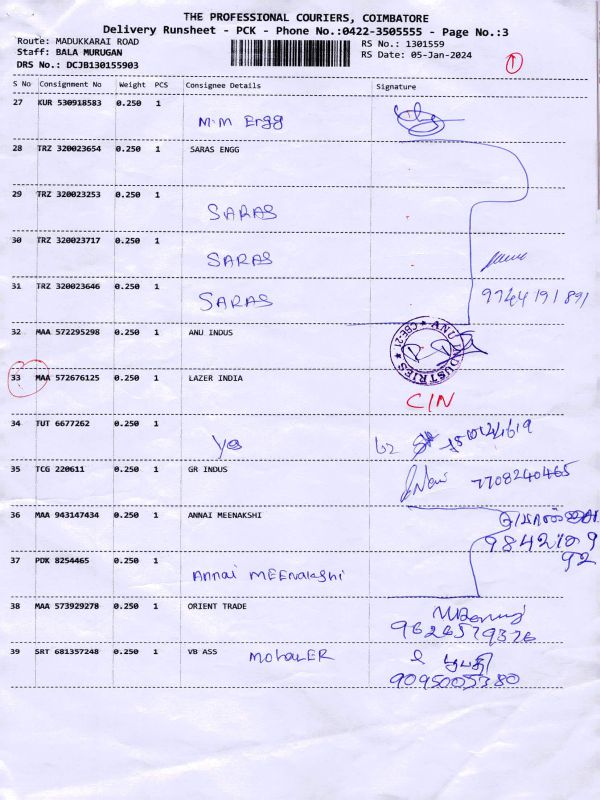 THE PROFESSIONAL COURIERS, COIMBATORE
Delivery Runsheet - PCK - Phone No.:0422-3505555 - Page No.:3
Route: MADUKKARAI ROAD
RS No.: 1301559
Staff: BALA MURUGAN
RS Date: 05-Jan-2024
DRS No.: DCJB130155903
S No Consignment No Weight PCS Consignee Details Signature
27 KUR 530918583 0.250 1 M.M Ergg
28 TRZ 320023654 0.250 1 SARAS ENGG
29 TRZ 320023253 0.250 1 SARAS
30 TRZ 320023717 0.250 1 SARAS
31 TRZ 320023646 0.250 1 SARAS
32 MAA 572295298 0.250 1 ANU INDUS
ANU INDUSTRIES CBE-21
33 MAA 572676125 0.250 1 LAZER INDIA C/N
34 TUT 6677262 0.250 1
35 TCG 220611 0.250 1 GR INDUS 7708240465
36 MAA 943147434 0.250 1 ANNAI MEENAKSHI
9842109
92
37 PDK 8254465 0.250 1 Annai MEENakshi
38 MAA 573929278 0.250 1 ORIENT TRADE
9626579376
39 SRT 681357248 0.250 1 VB ASS
9095005380